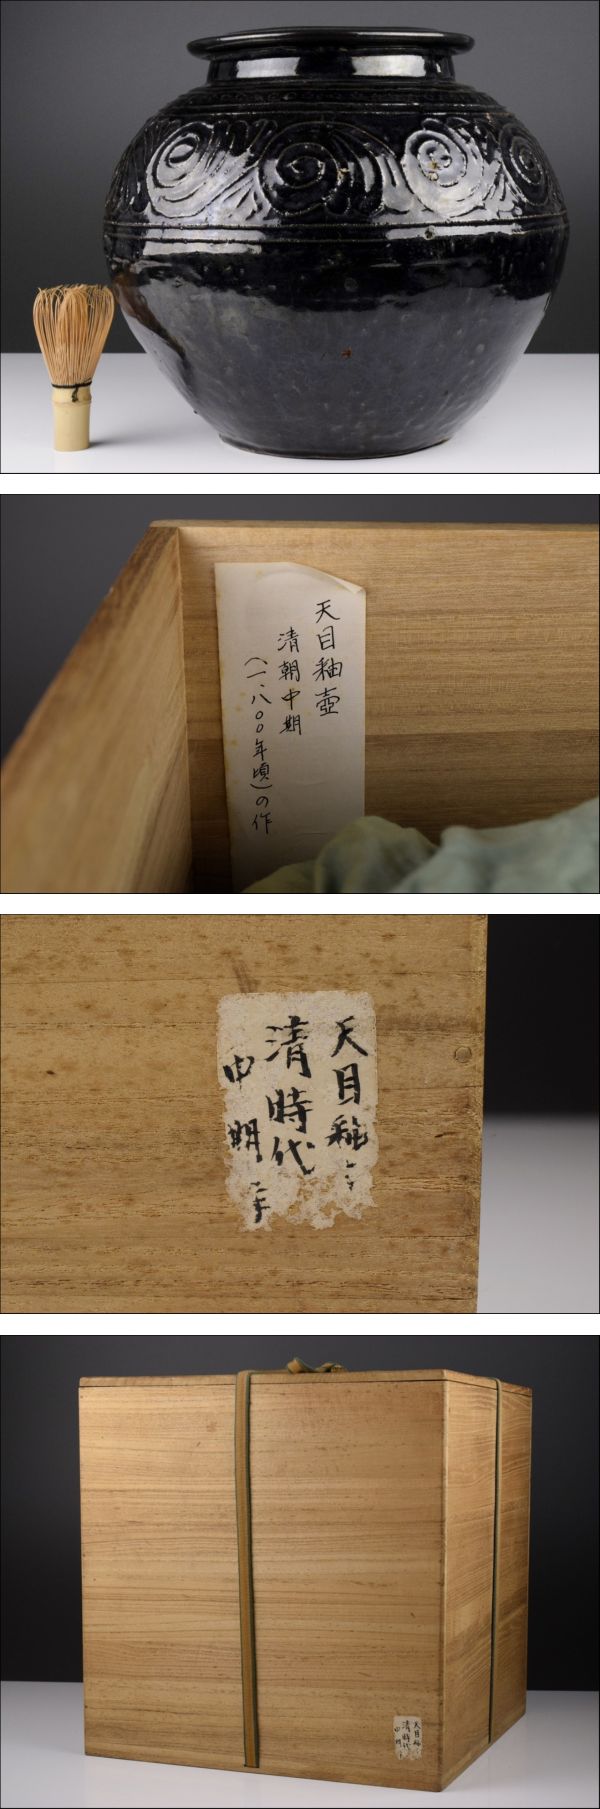 天目釉壺
清朝中期
(一八〇〇年頃)の作
天目釉
清時代
中期
天目釉
清時代
中期